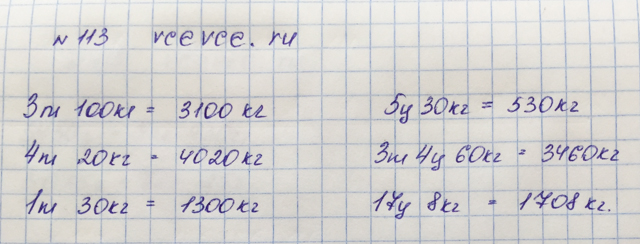 N 113 все все. ru
3т 100кг = 3100 кг
5ц 30кг = 530кг
4т 20кг = 4020кг
3т 4ц 60кг = 3460кг
1т 30кг = 1300кг
17ц 8кг = 1708кг.